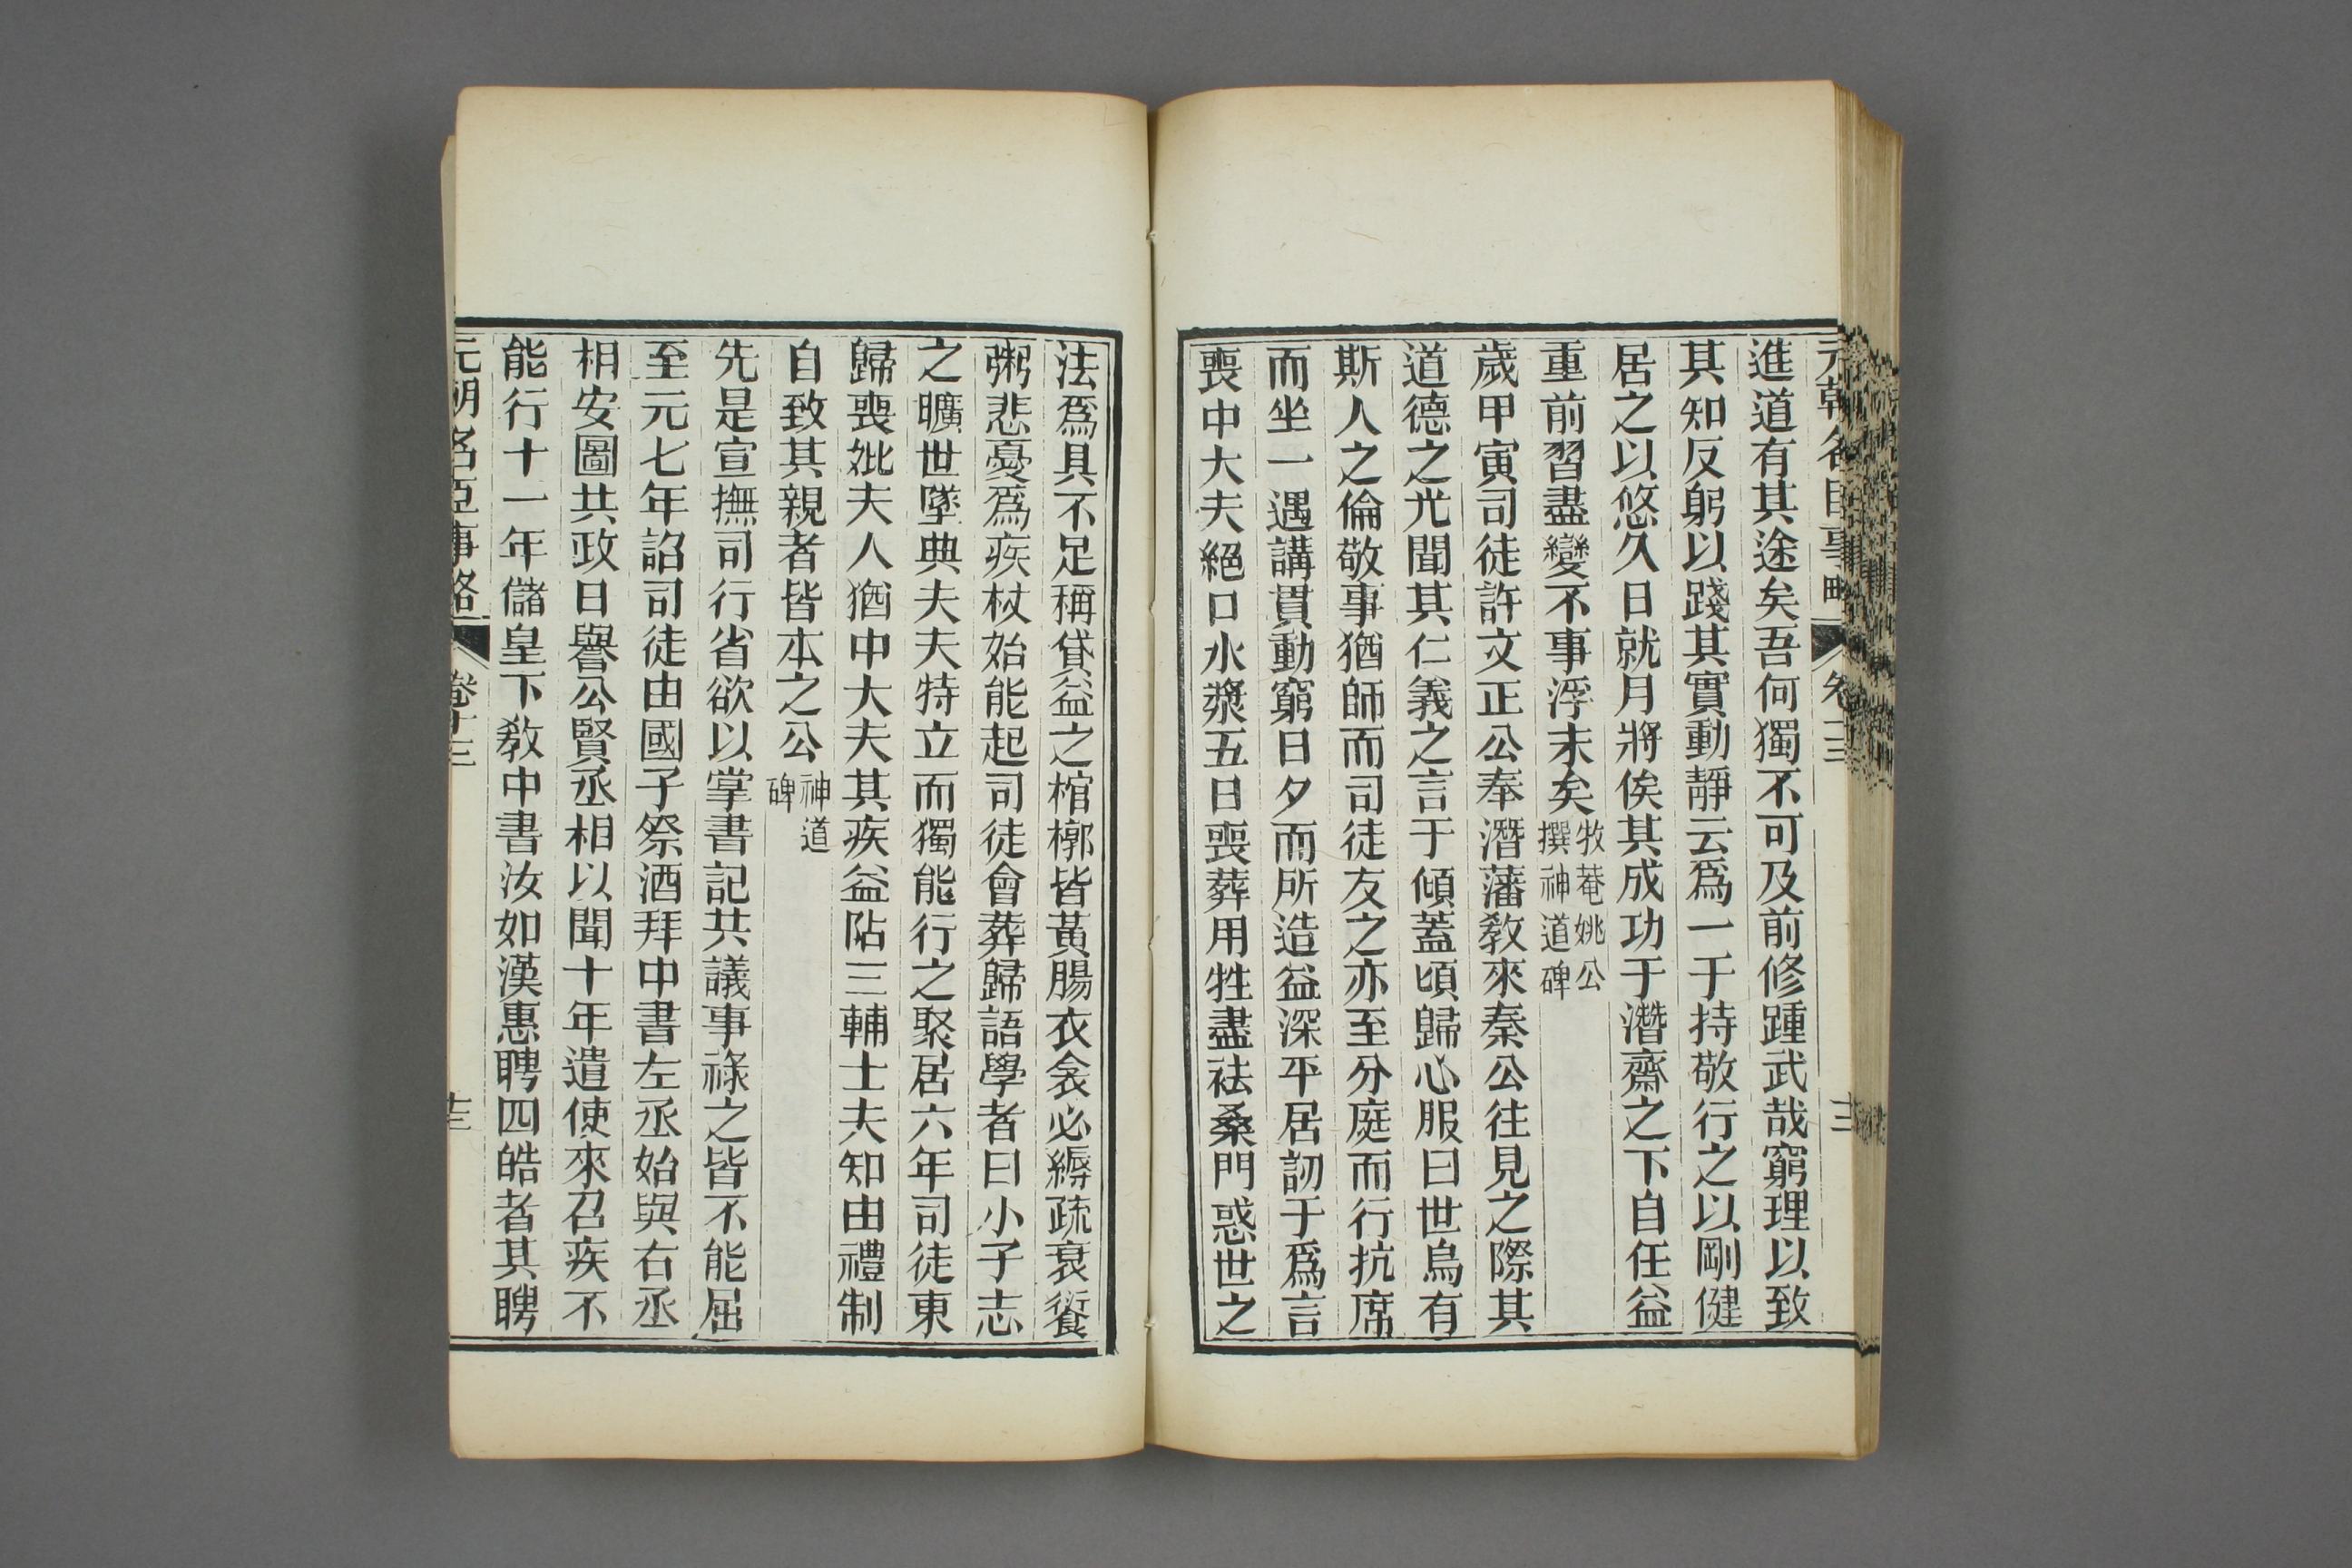 元朝名臣事略 卷十三 十二
進道有其途矣吾何獨不可及前修踵武哉窮理以致
其知反躬以踐其實動靜云爲一于持敬行之以剛健
居之以悠久日就月將俟其成功于潛齋之下自任益
重前習盡變不事浮末矣牧菴姚公撰神道碑
歲甲寅司徒許文正公奉潛藩敎來秦公往見之際其
道德之光聞其仁義之言于傾蓋頃歸心服曰世烏有
斯人之倫敬事猶師而司徒友之亦至分庭而行抗席
而坐一遇講貫動窮日夕而所造益深平居訒于爲言
喪中大夫絕口水漿五日喪葬用牲盡袪桑門惑世之
法爲具不足稱貸益之棺槨皆黃腸衣衾必縟疏衰饘
粥悲憂爲疾杖始能起司徒會葬歸語學者曰小子志
之曠世墜典夫夫特立而獨能行之聚居六年司徒東
歸喪妣夫人猶中大夫其疾益阽三輔士夫知由禮制
自致其親者皆本之公神道碑
先是宣撫司行省欲以掌書記共議事祿之皆不能屈
至元七年詔司徒由國子祭酒拜中書左丞始與右丞
相安圖共政日譽公賢丞相以聞十年遣使來召疾不
能行十一年儲皇下敎中書汝如漢惠聘四皓者其聘
元朝名臣事略 卷十三 十三